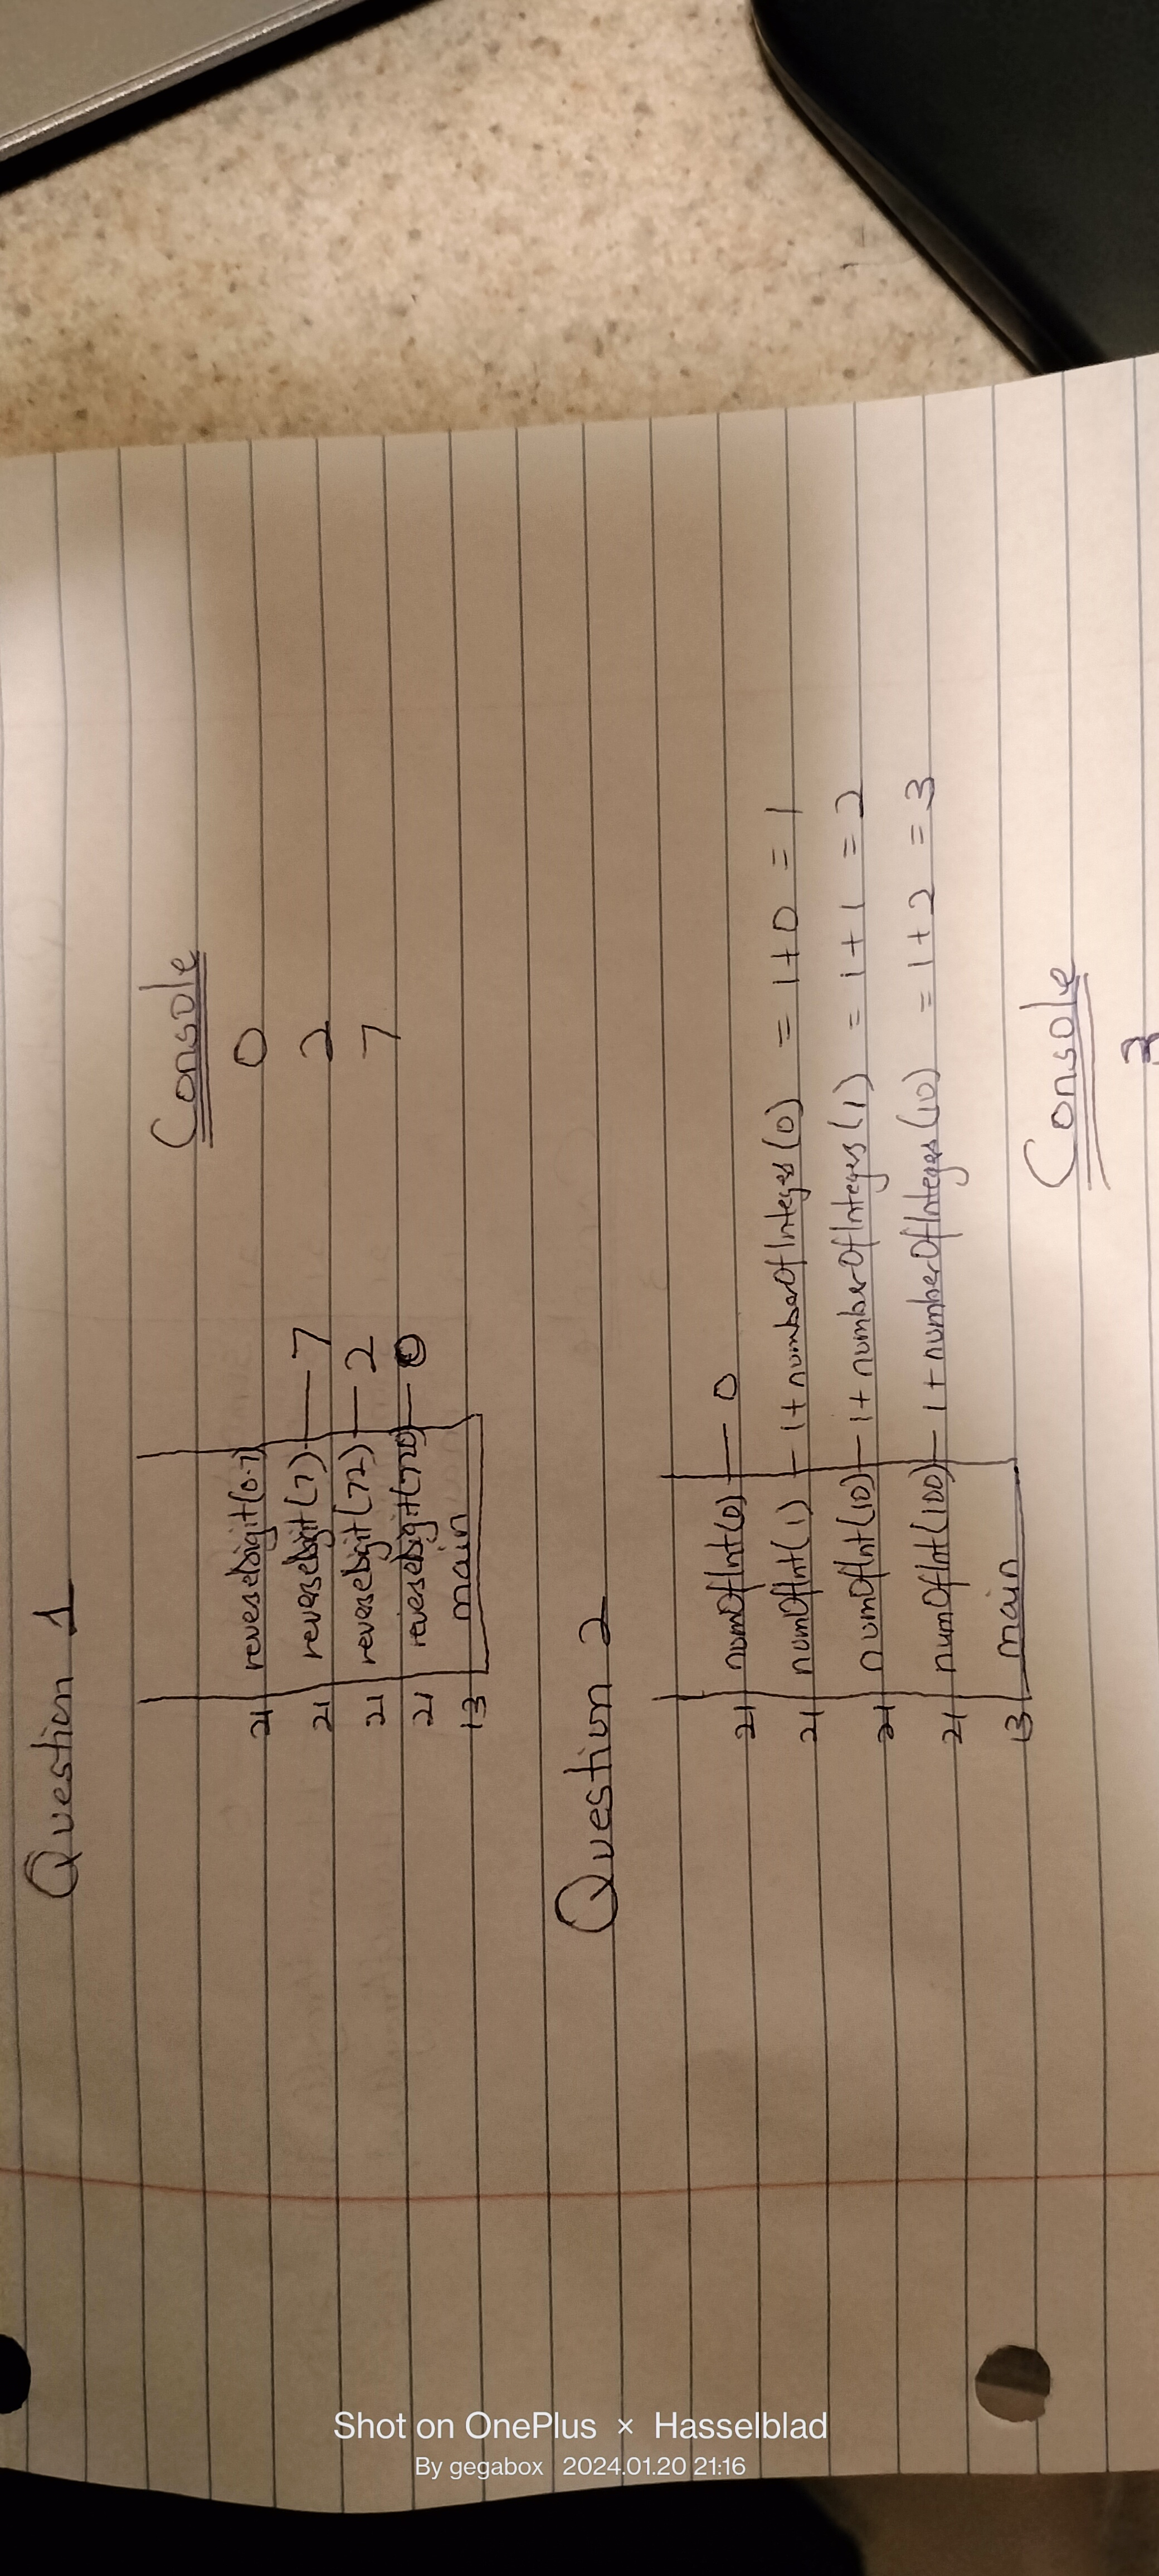 Question 1
Console
21 reversedigit(0.7) 0
21 reversedigit(7) — 7 2
21 reversedigit(72) — 2 7
21 reversedigit(720) — 0
13 main
Question 2
21 numOfInt(0) — 0
21 numOfInt(1) — 1 + numberOfIntegers(0) = 1+0 = 1
21 numOfInt(10) — 1 + numberOfIntegers(1) = 1+1 = 2
21 numOfInt(100) — 1 + numberOfIntegers(10) = 1+2 = 3
13 main
Console
3
Shot on OnePlus × Hasselblad
By gegabox 2024.01.20 21:16